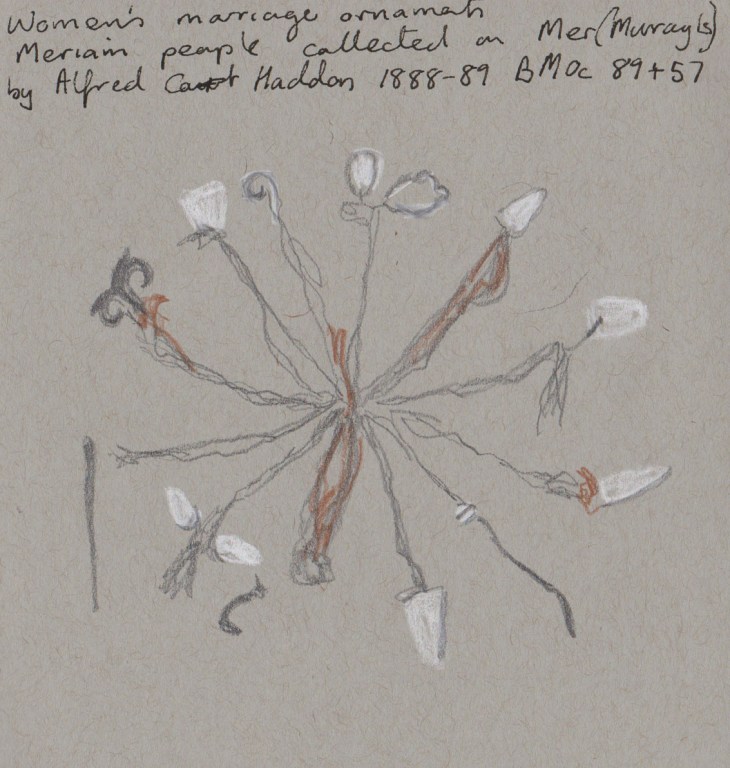 Women's marriage ornaments
Meriam people collected on Mer (Murray Is)
by Alfred Cort Haddon 1888-89 BM Oc 89+57